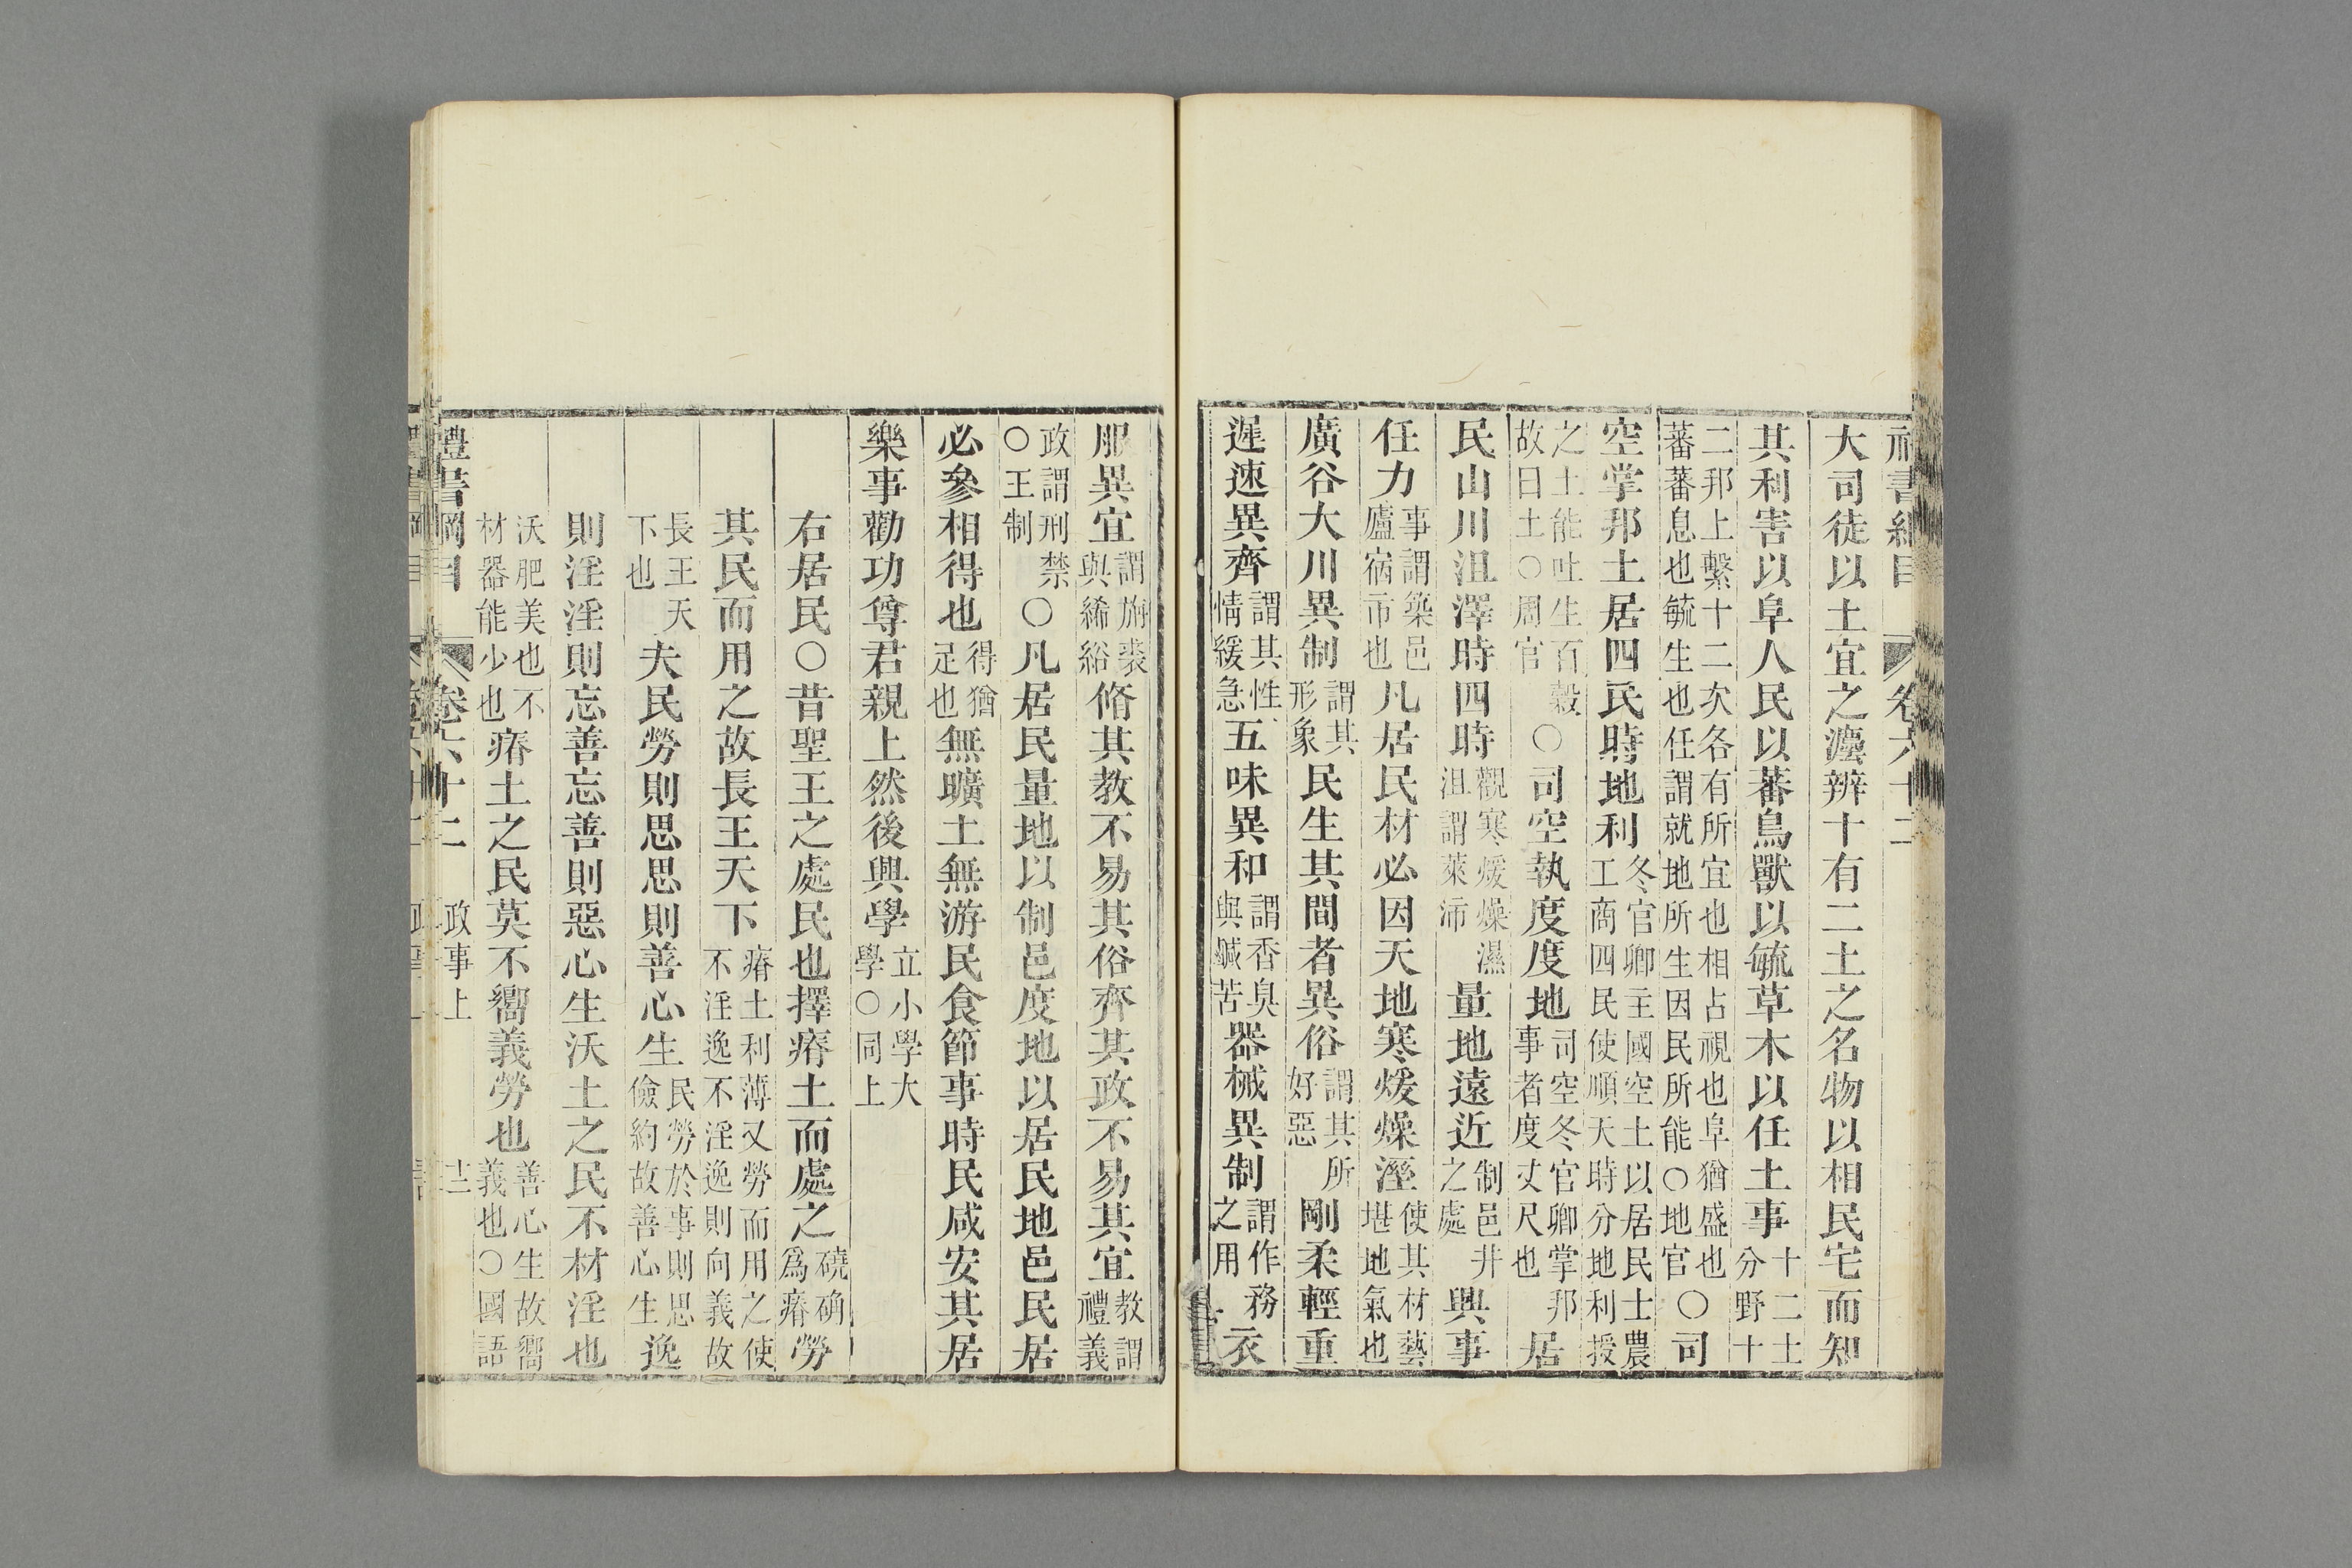 禮書綱目 卷六十二
大司徒以土宜之灋辨十有二土之名物以相民宅而知
其利害以阜人民以蕃鳥獸以毓草木以任土事十二土分野十
二邦上繫十二次各有所宜也相占視也阜猶盛也蕃蕃息也毓生也任謂就地所生因民所能○地官○司
空掌邦土居四民時地利冬官卿主國空土以居民士農工商四民使順天時分地利授
之土能吐生百穀故曰土○周官○司空執度度地司空冬官卿掌邦事者度丈尺也居
民山川沮澤時四時觀寒煖燥濕沮謂萊沛量地遠近制邑井之處興事
任力事謂築邑廬宿市也凡居民材必因天地寒煖燥溼使其材藝堪地氣也
廣谷大川異制謂其形象民生其間者異俗謂其所好惡剛柔輕重
遲速異齊謂其性情緩急五味異和謂香臭與鹹苦器械異制謂作務之用衣
服異宜謂旃裘與絺綌脩其教不易其俗齊其政不易其宜教謂禮義
政謂刑禁○王制○凡居民量地以制邑度地以居民地邑民居
必參相得也得猶足也無曠土無游民食節事時民咸安其居
樂事勸功尊君親上然後興學立小學大學○同上
右居民○昔聖王之處民也擇瘠土而處之磽确為瘠勞
其民而用之故長王天下瘠土利薄又勞而用之使不淫逸不淫逸則向義故
長王天下也夫民勞則思思則善心生民勞於事則思儉約故善心生逸
則淫淫則忘善忘善則惡心生沃土之民不材淫也
沃肥美也不材器能少也瘠土之民莫不嚮義勞也善心生故嚮義也○國語
禮書綱目 卷六十二 政事上 十二